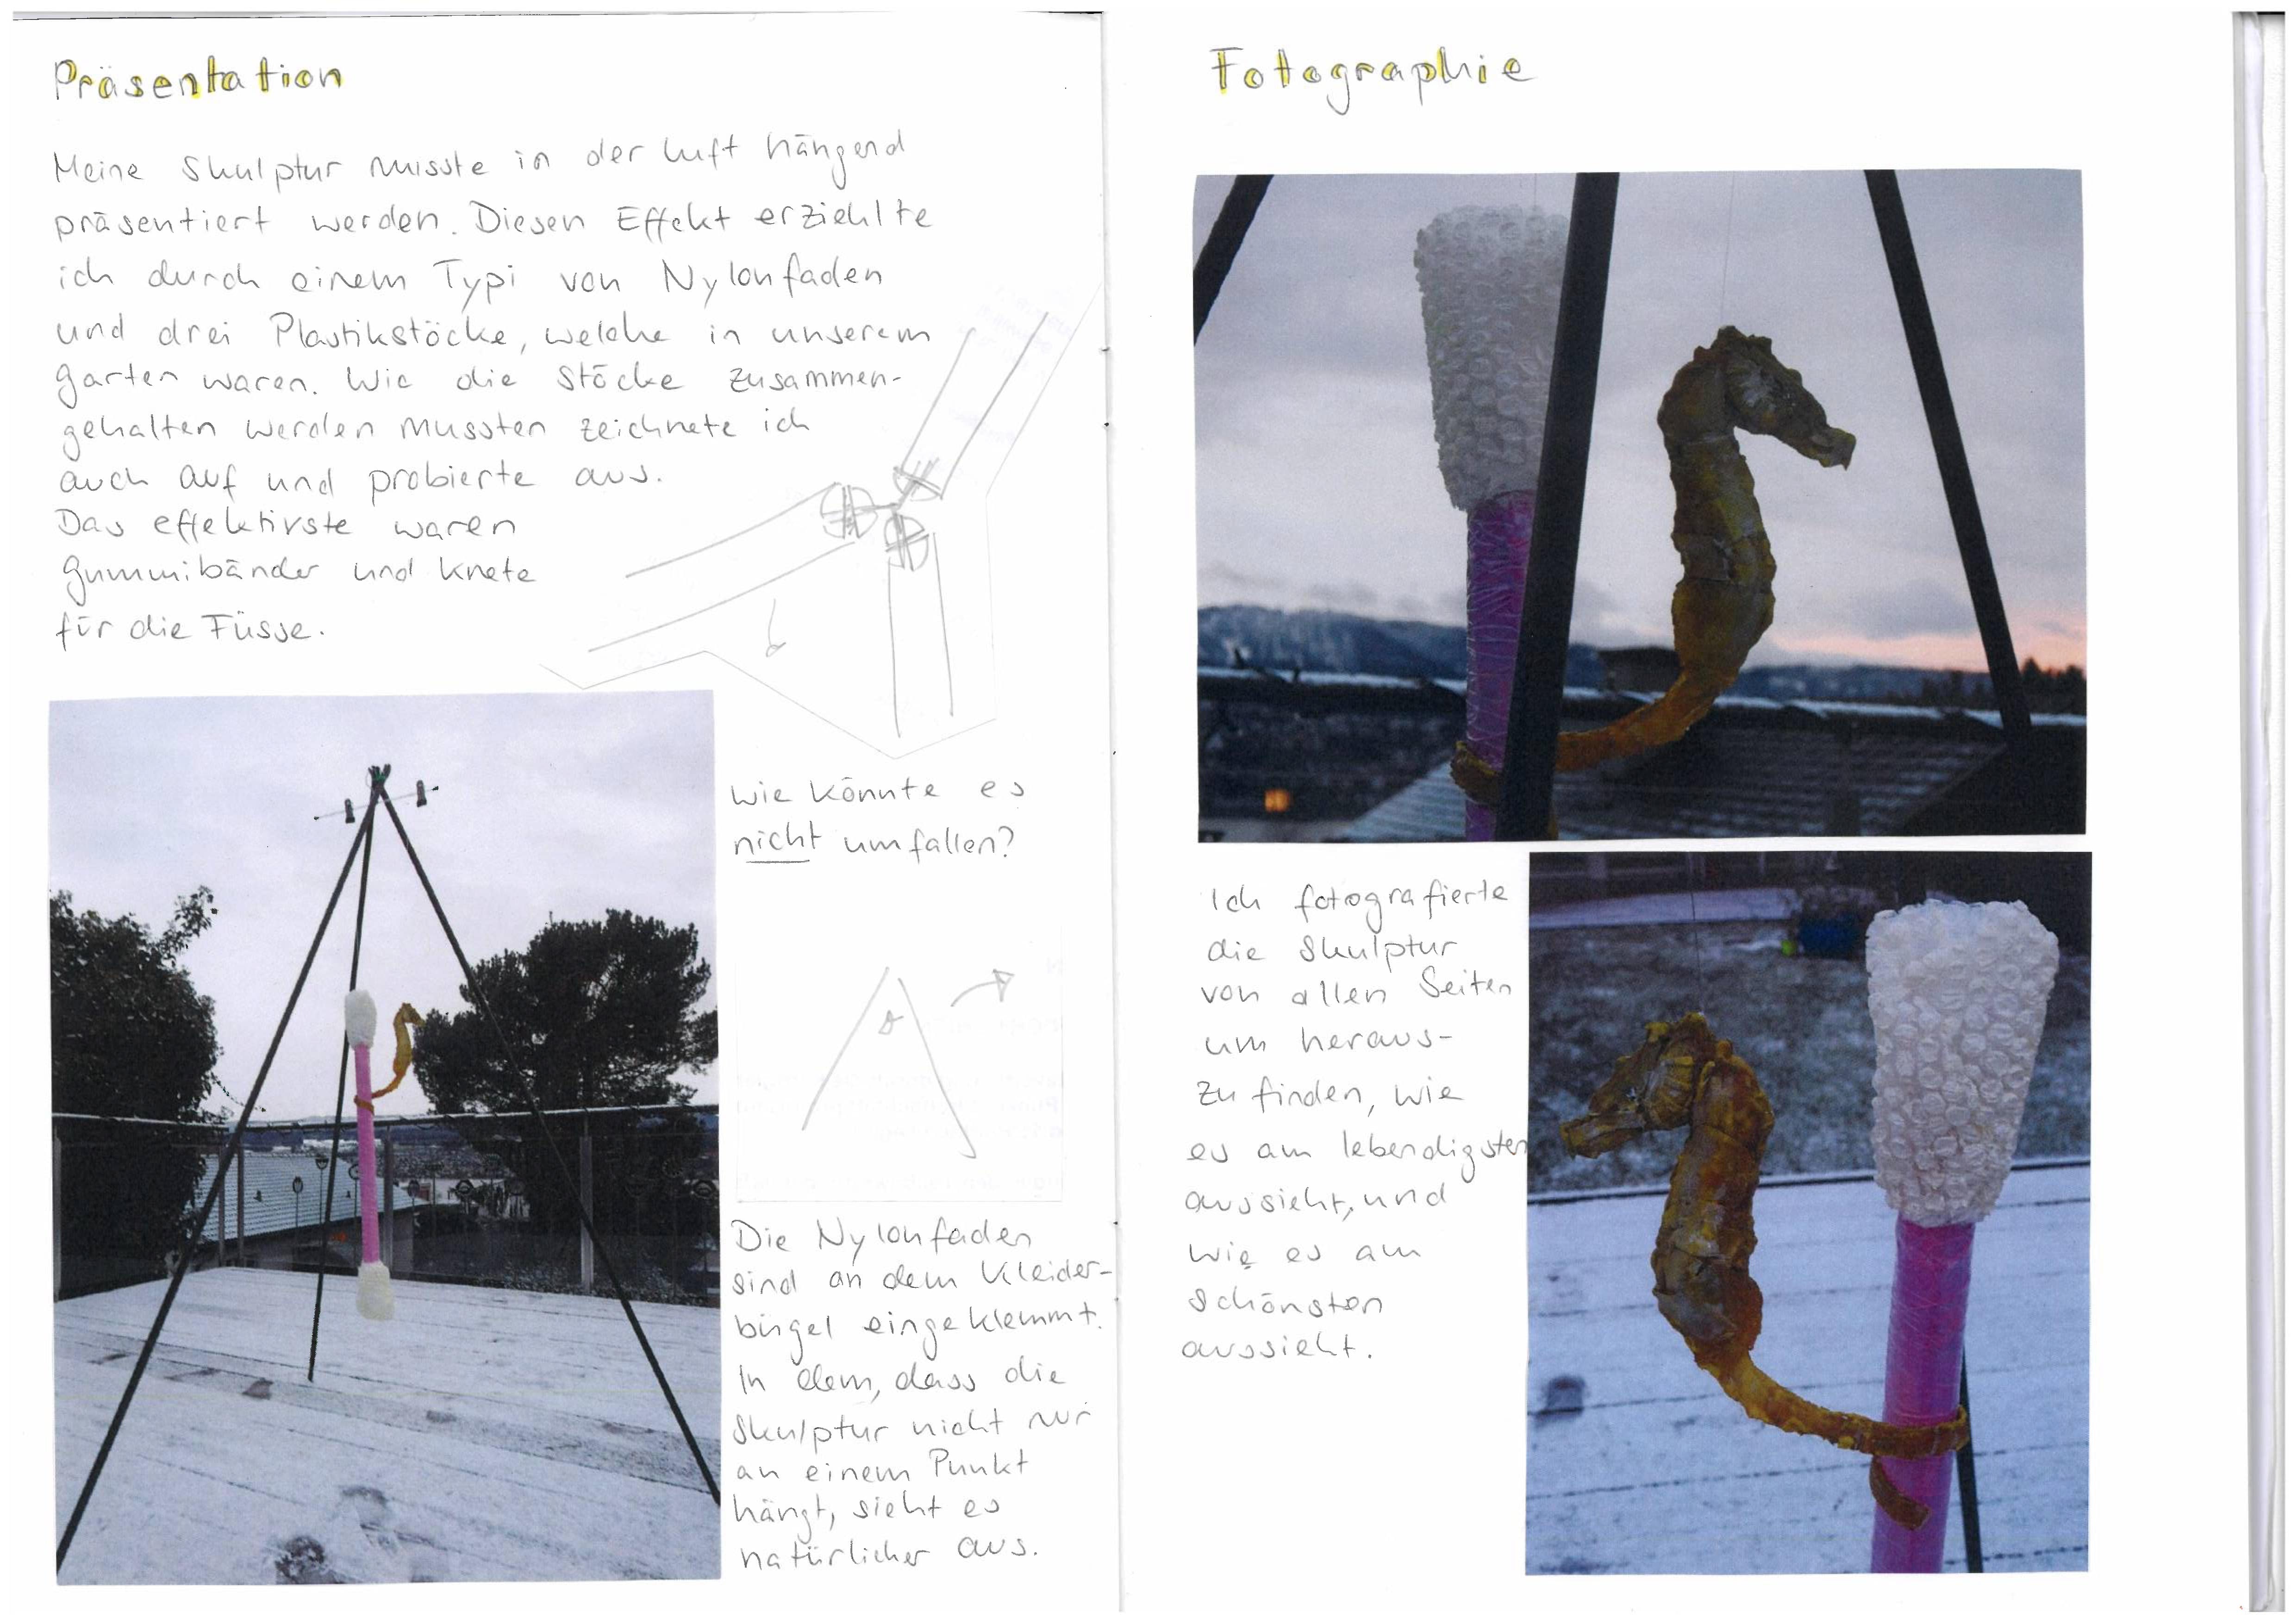 Präsentation
Meine Skulptur musste in der Luft hängend
präsentiert werden. Diesen Effekt erziehlte
ich durch einem Typi von Nylonfaden
und drei Plastikstöcke, welche in unserem
garten waren. Wie die Stöcke zusammen-
gehalten werden mussten zeichnete ich
auch auf und probierte aus.
Das effektivste waren
Gummibänder und Knete
für die Füsse.
Wie könnte es
nicht umfallen?
Die Nylonfaden
sind an dem Kleider-
bügel eingeklemmt.
In dem, dass die
Skulptur nicht nur
an einem Punkt
hängt, sieht es
natürlicher aus.
Fotographie
Ich fotografierte
die Skulptur
von allen Seiten
um heraus-
zu finden, wie
es am lebendigsten
aussieht, und
wie es am
schönsten
aussieht.